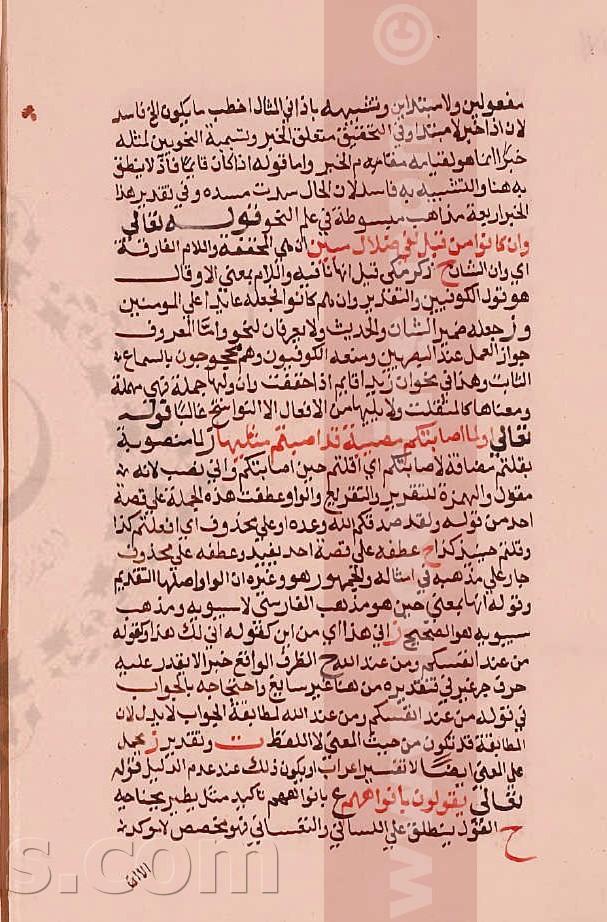 مفعولين ولا مبتدا بن وتشبيهه باذا في المثال اخطب ما يكون الخ فاسد
لان اذا خبر لا مبتدا وفي التحقيق متعلق الخبر وتسمية النحويين لمثله
خبرا انما هو لقيامه مقامه م الخبر واما قوله اذا كان قايما فاذ لا ينطق
به هنا والتشبيه به فاسد لان الحال سدت مسده وفي تقدير هذا
الخبر اربعة مذاهب مبسوطة في علم النحو قوله تعالي
وان كانوا من قبل لفي ضلال مبين ان هي المخففة واللام الفارقة
اي وان الشان ح ذكر مكي قبل انها نافيه واللام بمعني الا وقال
هو قول الكوفيين والتقدير وانهم كانوا لجعله عايدا علي المومنين
و ز جعله ضمير الشان والحديث ولا يعرفان لنحو وانما المعروف
جواز العمل عند البصريين ومنعه الكوفيون وهم محجوجون بالسماع
الثابت وهذا في نحو ان زيدا قايم اذا خففت وان وليها جملة فهي مهملة
ومعناها كالمثقلة ولا يليها من الافعال الا النواسخ غالبا قوله
تعالي اولما اصابتكم مصيبة قد اصبتم مثليها ز لما منصوبة
بقلتم مضافة لاصابتكم اي اقلتم حين اصابتكم واني نصب لانه
مقول والهمزة للتقرير والتقريع والواو عطفت هذه الجملة علي قصة
احد من قوله ولقد صدقكم الله وعده او علي محذوف اي افعلتم كذا
وقلتم حينيذ كذا ح عطفه علي قصة احد بعيد وعطفه علي محذوف
جار علي مذهبه في امثاله والجمهور هو وغيره ان الواو اصلها التقديم
وقوله انها بمعني حين هو مذهب الفارسي لا سيبويه ومذهب
سيبويه هو الصحيح ز اني هذا اي من اين كقوله اني لك هذا وكقوله
من عند انفسكم ومن عند الله ح الظرف الواقع خبرا لا يقدر عليه
حرف جر غير في فتقديره من هنا غير سايغ واحتجاجه بالجواب
في قوله من عند انفسكم ومن عند الله لمطابقة الجواب لا يدل لان
المطابقة قد تكون من حيث المعني لا اللفظ ت وتقدير ز يحمل
علي المعني ايضا لا تفسير اعراب او يكون ذلك عند عدم الدليل قوله
تعالي يقولون بافواههم ع بافواههم تاكيد مثل يطير بجناحيه
ح القول ينطلق علي اللساني والنفساني فهو مخصص لا موكد
s.com
©